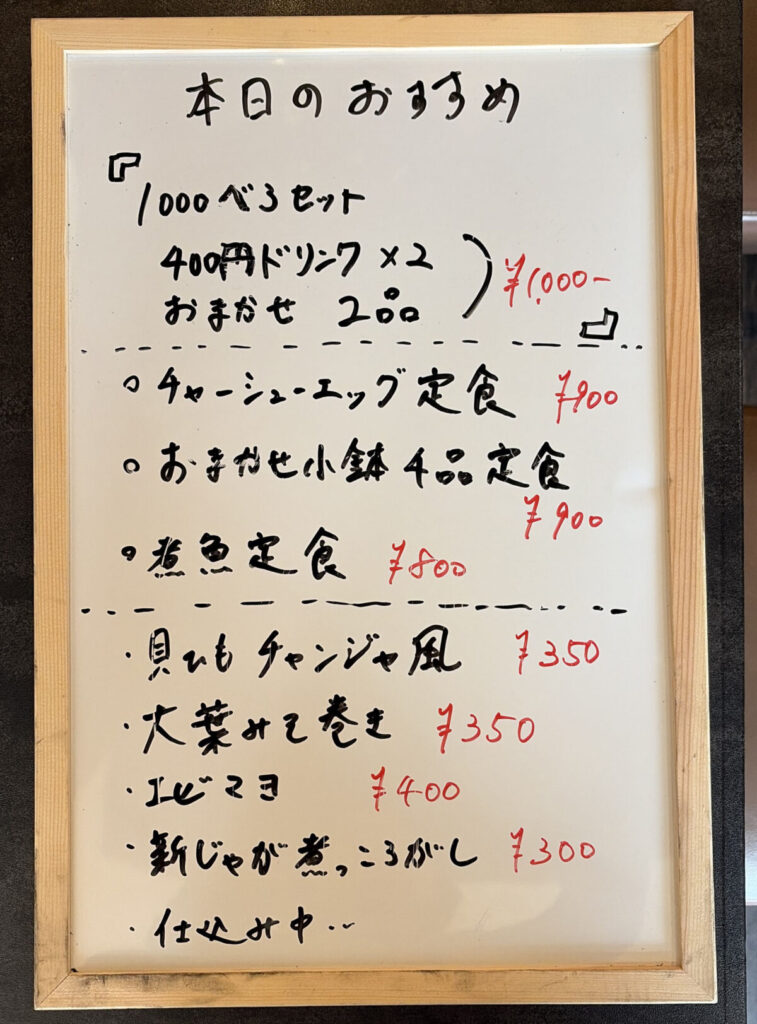 本日のおすすめ
『
1000べろセット
400円ドリンク×2
おまかせ 2品
¥1,000-
』
○ チャーシューエッグ定食 ¥900
○ おまかせ小鉢4品定食
¥900
○ 煮魚定食 ¥800
・貝ひもチャンジャ風 ¥350
・大葉みそ巻き ¥350
・エビマヨ ¥400
・新じゃが煮っころがし ¥300
・仕込み中‥